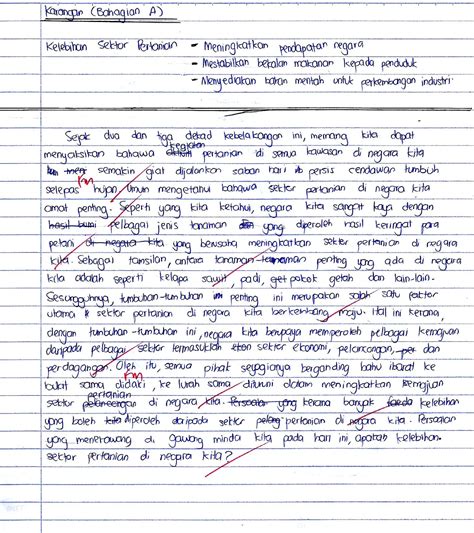 Karangan (Bahagian A)
Kelebihan Sektor Pertanian - Meningkatkan pendapatan negara
- Mestabilkan bekalan makanan kepada penduduk
- Menyediakan bahan mentah untuk perkembangan industri
Sejak dua dan tiga dekad kebelakangan ini, memang kita dapat
kegiatan
menyaksikan bahawa pertanian di semua kawasan di negara kita
semakin giat dijalankan saban hari persis cendawan tumbuh
selepas hujan. Umum mengetahui bahawa sektor pertanian di negara kita
amat penting. Seperti yang kita ketahui, negara kita sangat kaya dengan
hasil bumi pelbagai jenis tanaman yang diperoleh hasil keringat para
petani di negara kita yang berusaha meningkatkan sektor pertanian di negara
kita. Sebagai tamsilan, antara tanaman-tanaman penting yang ada di negara
kita adalah seperti kelapa sawit, padi, getah dan lain-lain.
Sesungguhnya, tumbuhan-tumbuhan penting ini merupakan salah satu faktor
utama sektor pertanian di negara kita berkembang maju. Hal ini kerana,
dengan tumbuhan-tumbuhan ini, negara kita berupaya memperoleh pelbagai kemajuan
daripada pelbagai sektor termasuklah sektor ekonomi, pelancongan, dan
perdagangan. Oleh itu, semua pihak seyogianya berganding bahu ibarat ke
bukit sama didaki, ke lurah sama dituruni dalam meningkatkan kemajuan
pertanian
sektor pelancongan di negara kita. Persoalan yang kerana banyak kelebihan
yang boleh kita diperoleh daripada sektor pertanian di negara kita. Persoalan
yang menerawang di gawang minda kita pada hari ini, apakah kelebihan
sektor pertanian di negara kita?